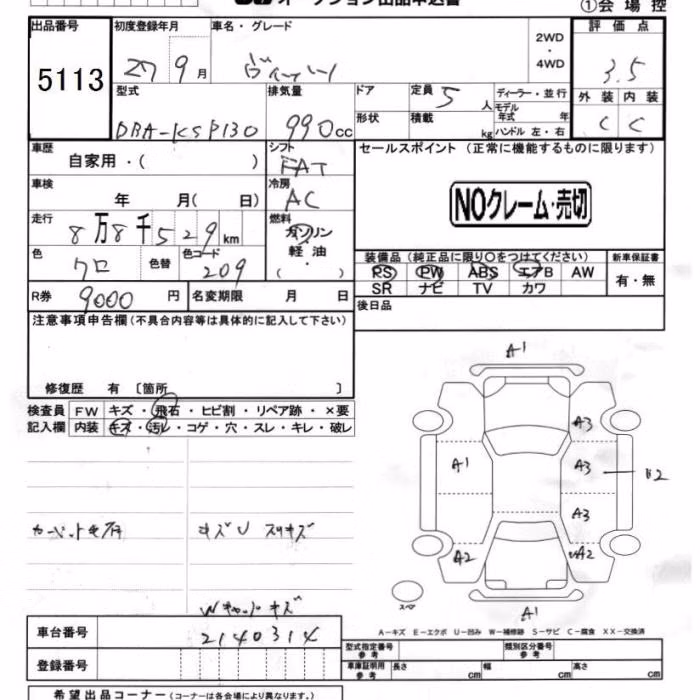 オークション出品申込書
①会場控
出品番号 初度登録年月 車名・グレード 2WD・4WD 評価点
5113 27 9月 ヴィッツ 3.5
型式 排気量 ドア 定員 5人 ディーラー・並行 外装 内装
モデル年式 年
DBA-KSP130 990cc 形状 積載 kg ハンドル 左・右 C C
車歴 シフト セールスポイント(正常に機能するものに限ります)
自家用・( ) FAT
車検 冷房
年 月(日) AC NOクレーム・売切
走行 燃料
8万8千529km ガソリン
軽油
・
( )
色 色替 色コード 装備品(純正品に限り○をつけてください) 新車保証書
クロ 209 PS PW ABS エアB AW 有・無
SR ナビ TV カワ
R券 9000円 名変期限 月 日 後日品
注意事項申告欄(不具合内容等は具体的に記入して下さい)
修復歴 有 〔箇所 〕
検査員 FW キズ・飛石・ヒビ割・リペア跡・×要
記入欄 内装 キズ・汚レ・コゲ・穴・スレ・キレ・破レ
A1
A3
A1 A3 B2
A3
A2 A2
A1
スペア
キズU スリキズ
車台番号 2140314
A-キズ E-エクボ U-凹み W-補修跡 S-サビ C-腐食 XX-交換済
登録番号
型式指定番号 参考 類別区分番号 参考
車庫証明用 参考 長さ cm 幅 cm 高さ cm
希望出品コーナー(コーナーは各会場により異なります。)